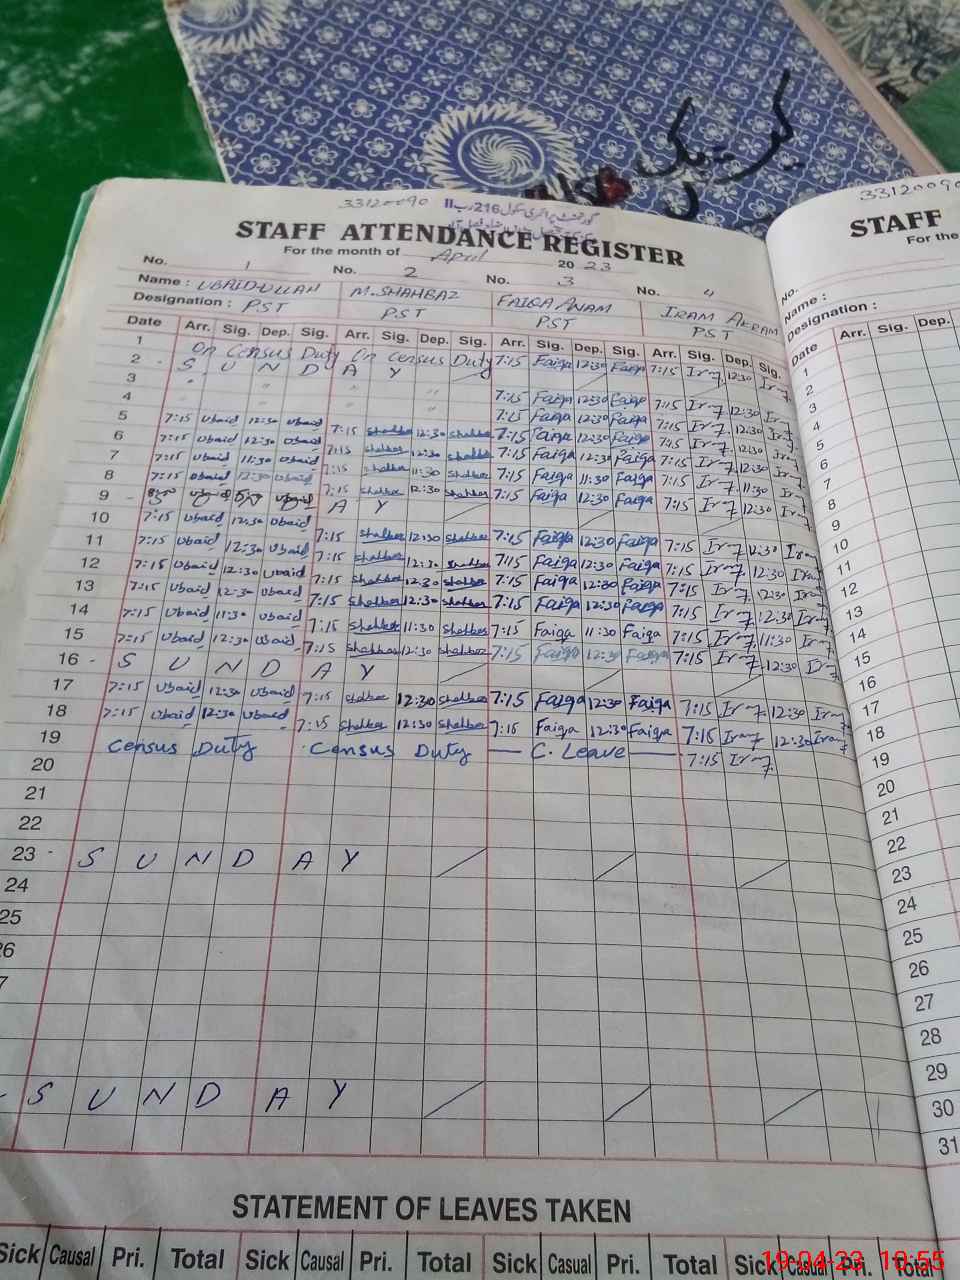 33120090
گورنمنٹ پرائمری سکول 216 رب II
STAFF ATTENDANCE REGISTER
For the month of April 2023
No. 1 No. 2 No. 3 No. 4
Name : UBAID-ULLAH M.SHAHBAZ FAIQA ANAM IRAM AKRAM
Designation : PST PST PST PST
Date Arr. Sig. Dep. Sig. Arr. Sig. Dep. Sig. Arr. Sig. Dep. Sig. Arr. Sig. Dep. Sig.
1 On Census Duty On Census Duty 7:15 Faiqa 12:30 Faiqa 7:15 Iram 12:30 Iram
2 S U N D A Y
3 " " " " 7:15 Faiqa 12:30 Faiqa 7:15 Iram 12:30 Iram
4 " " " " 7:15 Faiqa 12:30 Faiqa 7:15 Iram 12:30 Iram
5 7:15 Ubaid 12:30 Ubaid 7:15 Shahbaz 12:30 Shahbaz 7:15 Faiqa 12:30 Faiqa 7:15 Iram 12:30 Iram
6 7:15 Ubaid 12:30 Ubaid 7:15 Shahbaz 12:30 Shahbaz 7:15 Faiqa 12:30 Faiqa 7:15 Iram 12:30 Iram
7 7:15 Ubaid 11:30 Ubaid 7:15 Shahbaz 11:30 Shahbaz 7:15 Faiqa 11:30 Faiqa 7:15 Iram 11:30 Iram
8 7:15 Ubaid 12:30 Ubaid 7:15 Shahbaz 12:30 Shahbaz 7:15 Faiqa 12:30 Faiqa 7:15 Iram 12:30 Iram
9 A Y
10 7:15 Ubaid 12:30 Ubaid 7:15 Shahbaz 12:30 Shahbaz 7:15 Faiqa 12:30 Faiqa 7:15 Iram 12:30 Iram
11 7:15 Ubaid 12:30 Ubaid 7:15 Shahbaz 12:30 Shahbaz 7:15 Faiqa 12:30 Faiqa 7:15 Iram 12:30 Iram
12 7:15 Ubaid 12:30 Ubaid 7:15 Shahbaz 12:30 Shahbaz 7:15 Faiqa 12:30 Faiqa 7:15 Iram 12:30 Iram
13 7:15 Ubaid 12:30 Ubaid 7:15 Shahbaz 12:30 Shahbaz 7:15 Faiqa 12:30 Faiqa 7:15 Iram 12:30 Iram
14 7:15 Ubaid 11:30 Ubaid 7:15 Shahbaz 11:30 Shahbaz 7:15 Faiqa 11:30 Faiqa 7:15 Iram 11:30 Iram
15 7:15 Ubaid 12:30 Ubaid 7:15 Shahbaz 12:30 Shahbaz 7:15 Faiqa 12:30 Faiqa 7:15 Iram 12:30 Iram
16 S U N D A Y
17 7:15 Ubaid 12:30 Ubaid 7:15 Shahbaz 12:30 Shahbaz 7:15 Faiqa 12:30 Faiqa 7:15 Iram 12:30 Iram
18 7:15 Ubaid 12:30 Ubaid 7:15 Shahbaz 12:30 Shahbaz 7:15 Faiqa 12:30 Faiqa 7:15 Iram 12:30 Iram
19 Census Duty Census Duty C. Leave 7:15 Iram
20
21
22
23 S U N D A Y
24
25
26
7
S U N D A Y
STATEMENT OF LEAVES TAKEN
Sick Causal Pri. Total Sick Causal Pri. Total Sick Casual Pri. Total Sick Casual Pri. Total
33120090
STAFF
For the
No.
Name :
Designation :
Date Arr. Sig. Dep.
1
2
3
4
5
6
7
8
9
10
11
12
13
14
15
16
17
18
19
20
21
22
23
24
25
26
27
28
29
30
31
19-04-23 10:55